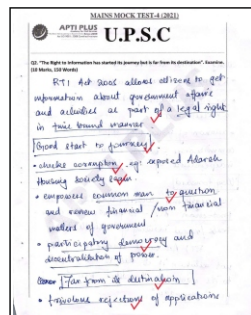 MAINS MOCK TEST-4 (2021)
APTI PLUS
U.P.S.C
Q2. "The Right to Information has started its journey but is far from its destination". Examine.
(10 Marks, 150 Words)
RTI Act 2005 allows citizens to get
information about government affairs
and activities as part of a legal right
in time bound manner
Good start to journey
• checks corruption, eg: exposed Adarsh
Housing society scam
• empowers common man to question
and review financial / non financial
matters of government
• participatory democracy and
decentralisation of power.
Far from its destination
• frivolous rejections of applications